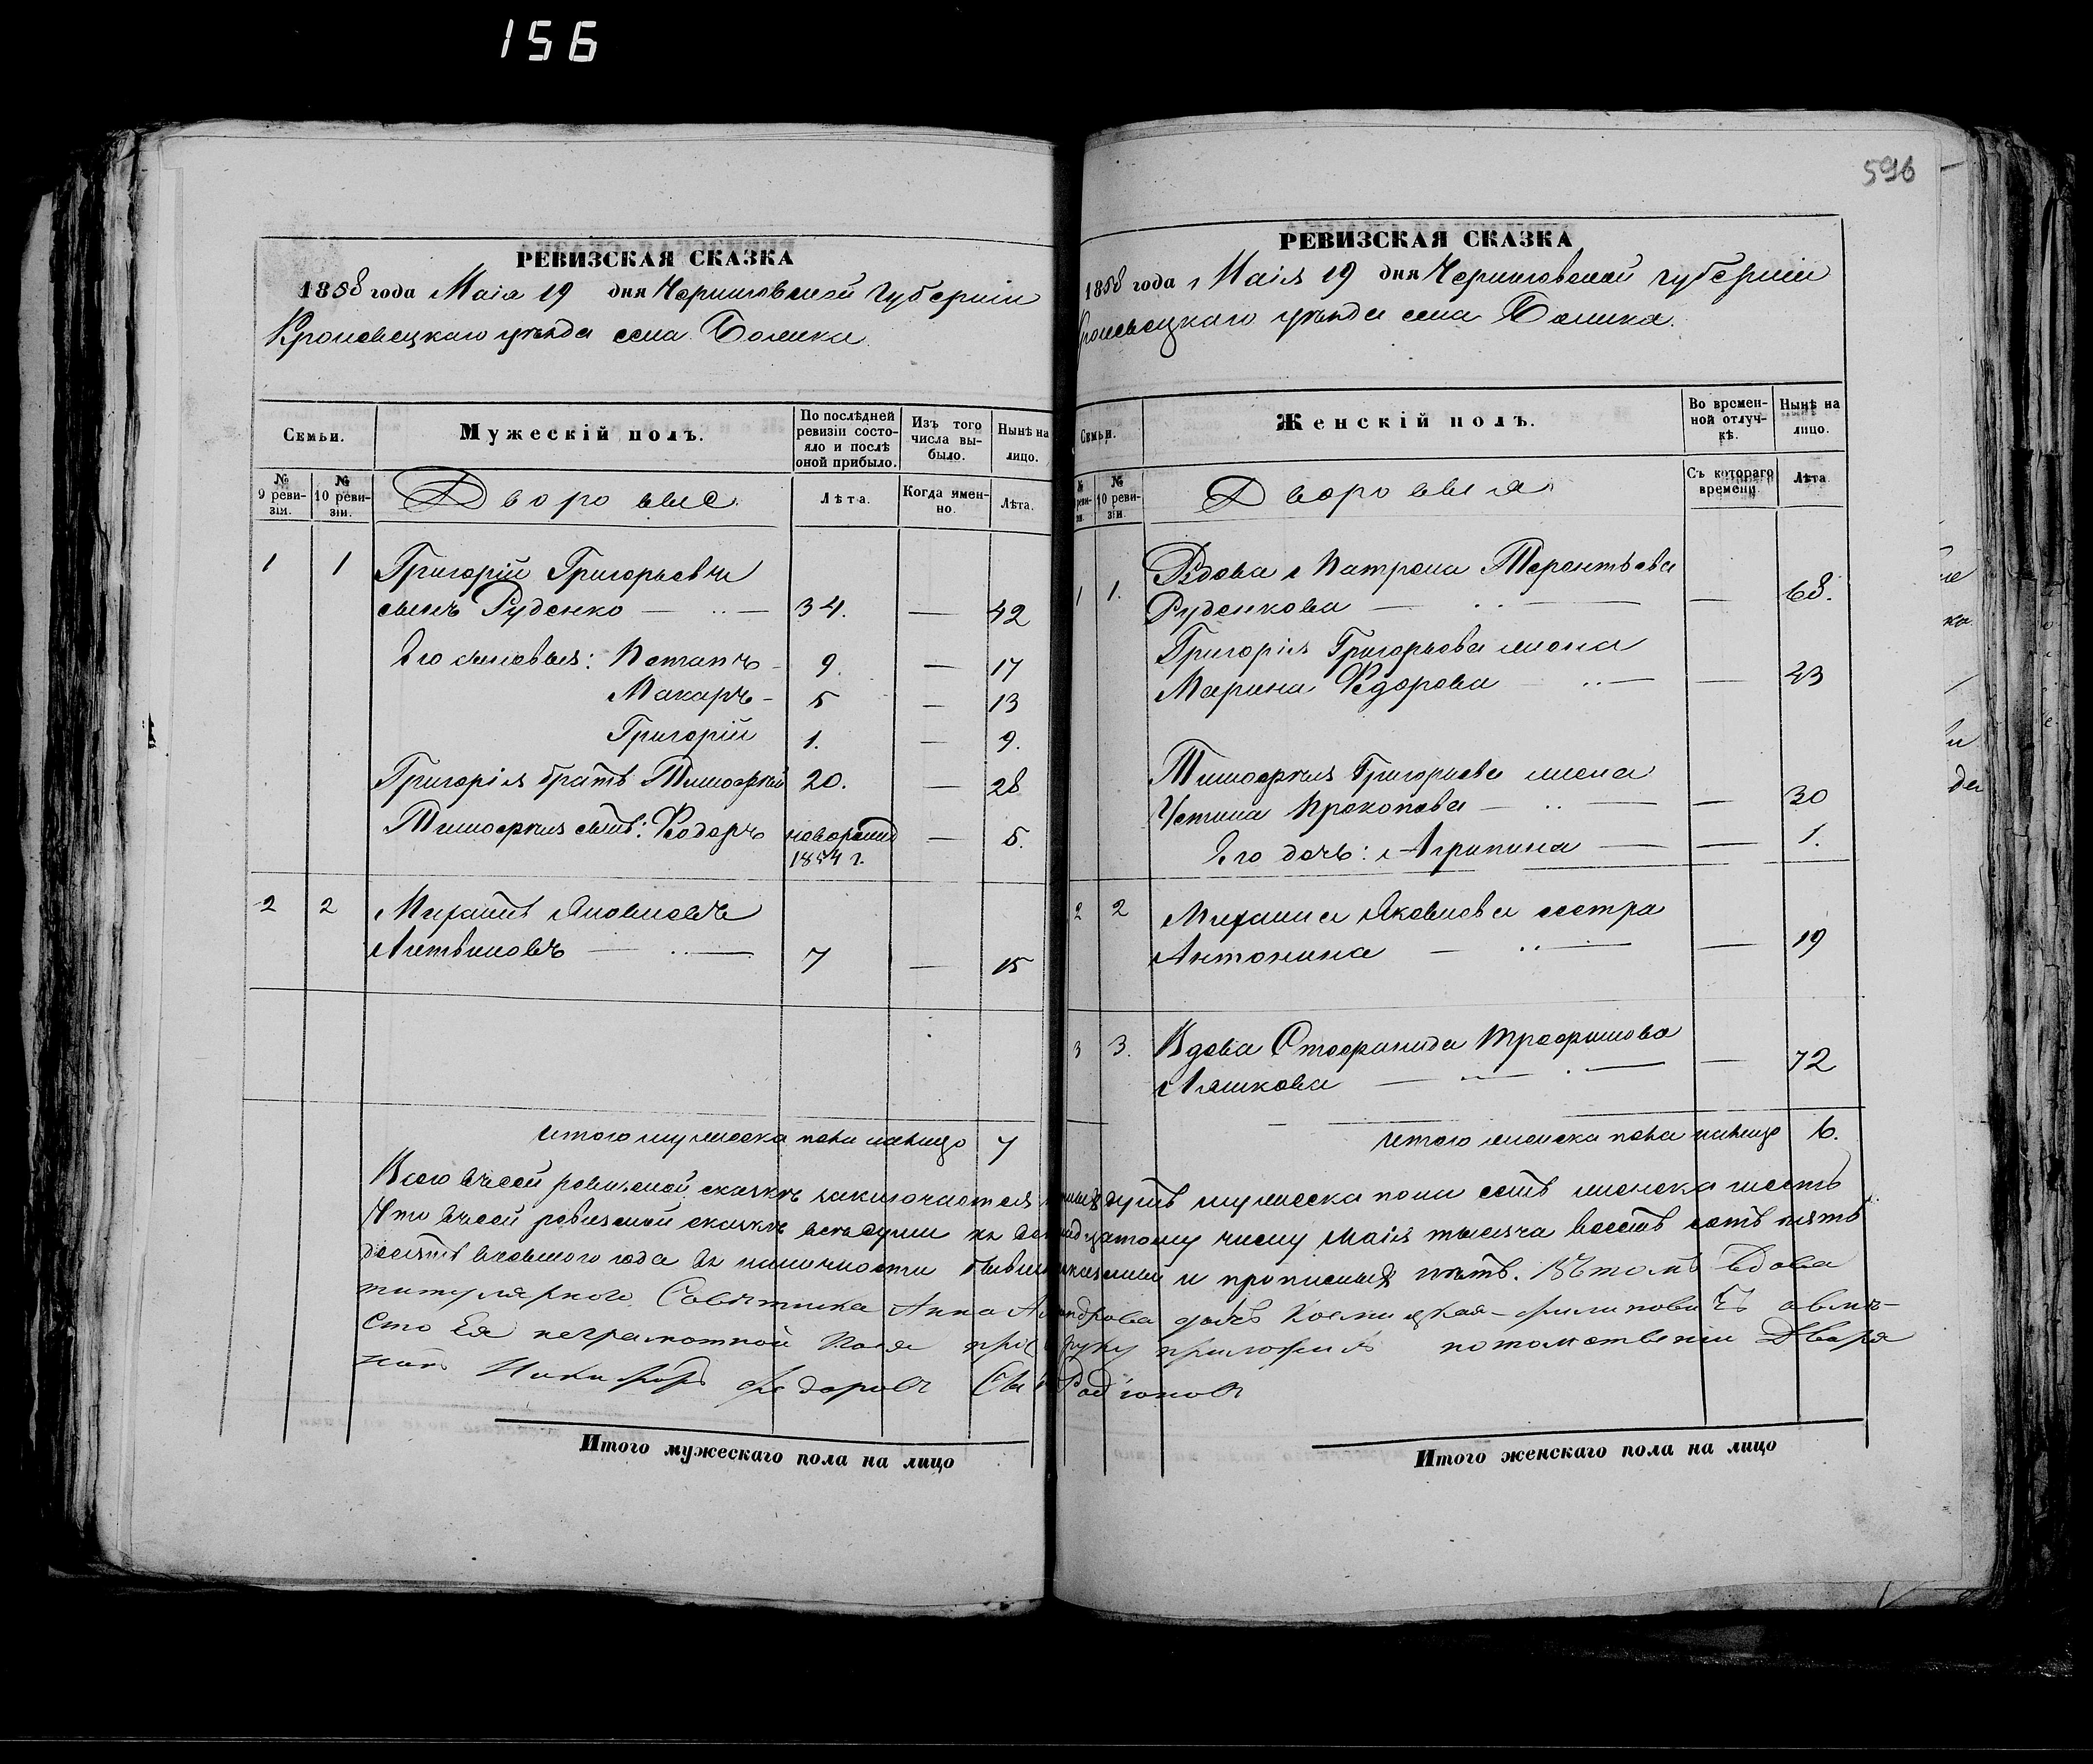 156
596
РЕВИЗСКАЯ СКАЗКА
1858 года Маія 19 дня Черниговской губерніи
Кролевецкаго уѣзда села
Семьи.
Мужескій полъ.
По послѣдней ревизіи состояло и послѣ оной прибыло.
Изъ того числа выбыло.
Нынѣ на лицо.
№ 9 ревизіи.
№ 10 ревизіи.
Дворовые
Лѣта.
Когда именно.
Лѣта.
1 1 Григорій Григорьевъ
сынъ Руденко — .. — 34. — 42
Его сыновья: Потапъ - 9. — 17
Макаръ - 5 — 13
Григорій 1. — 9.
Григорія братъ Тимофей 20. — 28
Тимофея сынъ: Федоръ новорожд — 5.
1854 г.
2 2 Михаилъ Яковлевъ
Литвиновъ — .. — 7 — 15
итого мужеска пола налицо 7
РЕВИЗСКАЯ СКАЗКА
1858 года Маія 19 дня Черниговской губерніи
Кролевецкаго уѣзда села
Семьи.
Женскій полъ.
Во временной отлучкѣ.
Нынѣ на лицо.
№ 10 ревизіи.
Дворовыя
Съ котораго времени.
Лѣта.
1 1. Вдова Матрона Терентьева
Руденкова — .. — — 68.
Григорія Григорьева жона
Марина Федорова .. — — 43
Тимофея Григорьева жона
Устина Прокопова — .. — — 30
Его дочь: Агрипина — — 1.
2 2 Михаила Яковлева сестра
Антонина — .. — — 19
3 3. Вдова Стефанида Трофимова
Ляшкова — .. — — 72
итого женска пола налицо 6.
Всего въ сей ревизской сказкѣ заключается душъ мужеска пола семь женска шесть
Что въ сей ревизской сказкѣ всѣ души къ числу Маія тысяча восемь сотъ пять
десятъ года въ наличности и прописныхъ нѣтъ. Въ томъ вдова
титулярного Советника Анна дочь Филиповичъ а вмѣ-
сто Ея неграмотной руку приложилъ потомственни Дворя
нинъ Никифоръ Федоровъ Сынъ Родіоновъ
Итого мужескаго пола на лицо
Итого женскаго пола на лицо